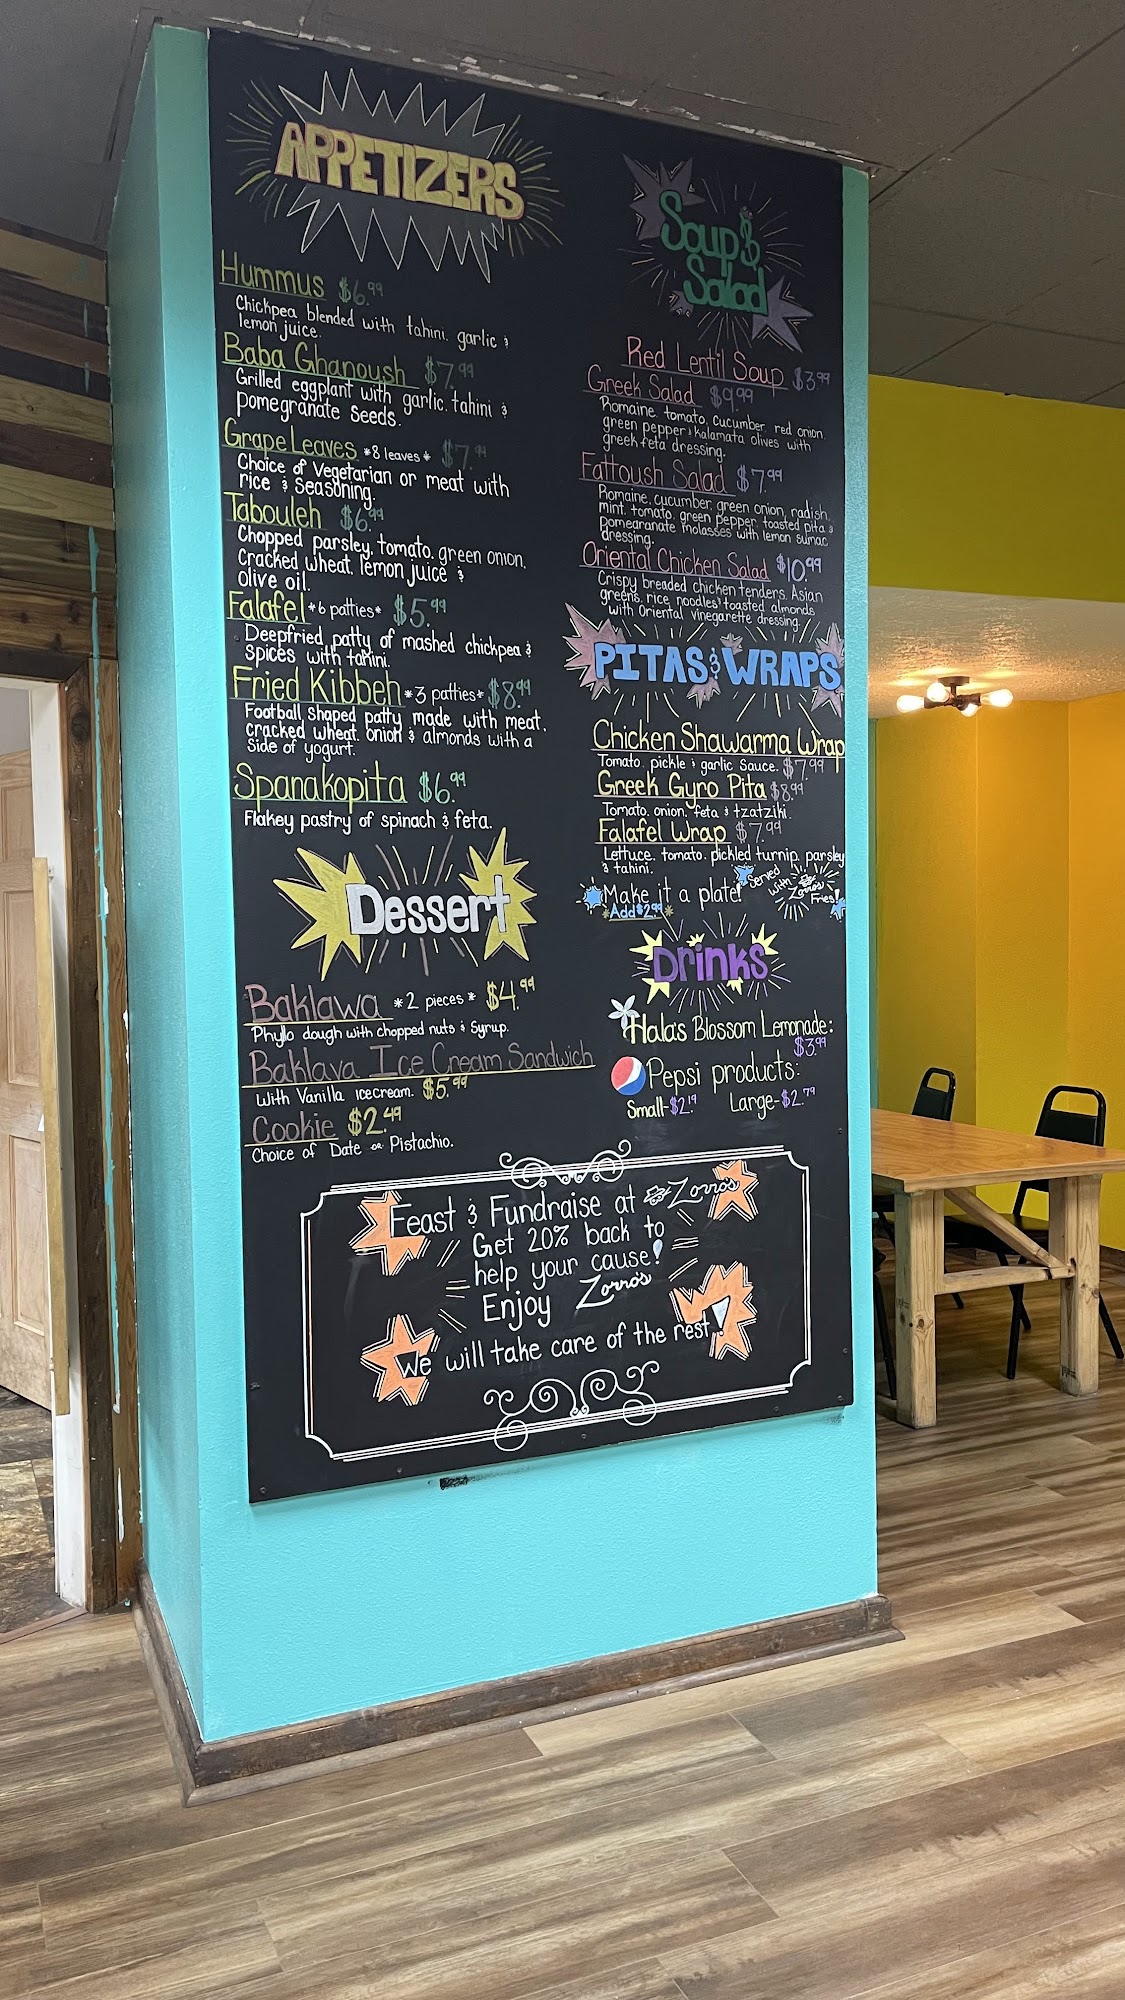 APPETIZERS
Hummus $6.99
Chickpea blended with tahini, garlic &
lemon juice.
Baba Ghanoush $7.99
Grilled eggplant with garlic, tahini &
pomegranate seeds.
Grape Leaves *8 leaves* $7.99
Choice of Vegetarian or meat with
rice & Seasoning.
Tabouleh $6.99
Chopped parsley, tomato, green onion,
Cracked wheat, lemon juice &
Olive oil.
Falafel *6 patties* $5.99
Deepfried patty of mashed chickpea &
spices with tahini.
Fried Kibbeh *3 patties* $8.99
Football shaped patty made with meat,
cracked wheat, onion & almonds with a
Side of yogurt.
Spanakopita $6.99
Flakey pastry of spinach & feta.
Dessert
Baklawa *2 pieces* $4.99
Phyllo dough with chopped nuts & Syrup.
Baklava Ice Cream Sandwich
With Vanilla icecream. $5.99
Cookie $2.49
Choice of Date or Pistachio.
Soup &
Salad
Red Lentil Soup $3.99
Greek Salad $9.99
Romaine, tomato, cucumber, red onion,
green pepper & kalamata olives with
greek feta dressing.
Fattoush Salad $7.99
Romaine, cucumber, green onion, radish,
mint, tomato, green pepper, toasted pita &
Pomegranate molasses with lemon sumac
dressing.
Oriental Chicken Salad $10.99
Crispy breaded chicken tenders, Asian
greens, rice noodles, toasted almonds
with Oriental vinegarette dressing.
PITAS & WRAPS
Chicken Shawarma Wrap
Tomato, pickle & garlic sauce. $7.99
Greek Gyro Pita $8.99
Tomato, onion, feta & tzatziki.
Falafel Wrap $7.99
Lettuce, tomato, pickled turnip, parsley
& tahini.
Make it a plate!
*Add $2.99*
Served
with
Zorro's
Fries!
Drinks
Hala's Blossom Lemonade:
$3.99
Pepsi products:
Small-$2.19 Large-$2.79
Feast & Fundraise at Zorro's
Get 20% back to
help your cause!
Enjoy Zorro's
We will take care of the rest!